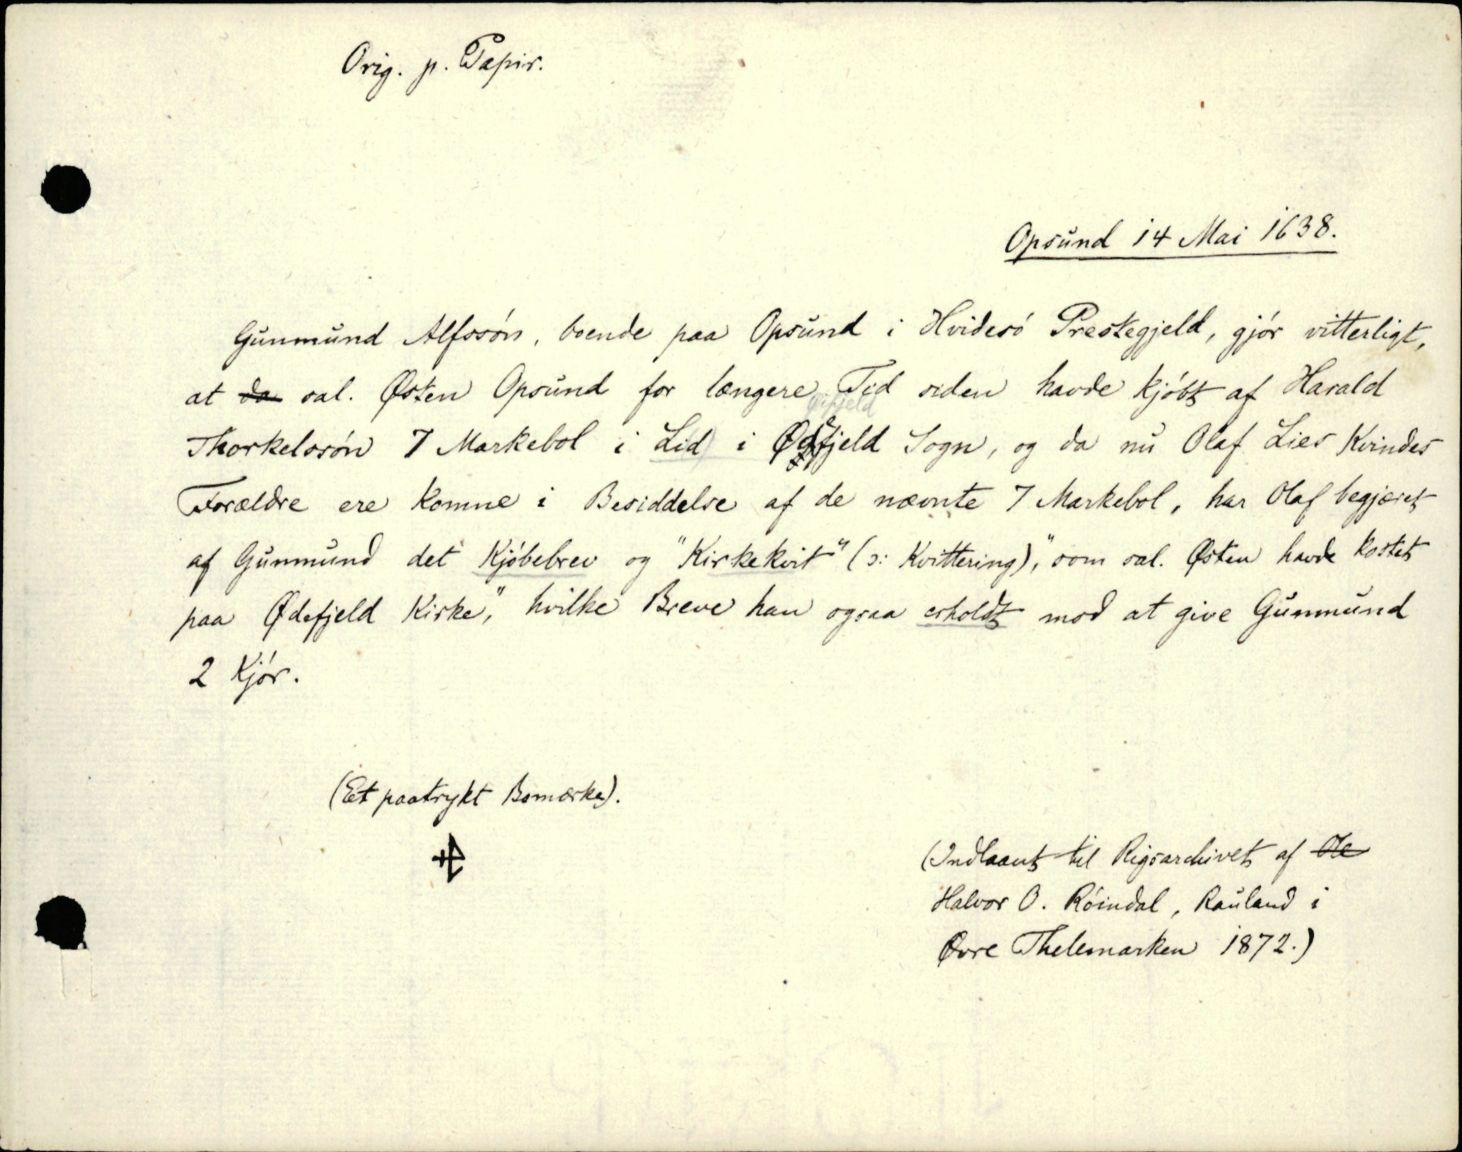 Orig. p. Papir.
Opsund 14 Mai 1638.
Gunmund Alfssøn, boende paa Opsund i Hvidesø Prestegjeld, gjør vitterligt,
at da sal. Østen Opsund for længere Tid siden havde kjøbt af Harald
Øifjeld
Thorkelssøn 7 Markebol i Lid i Ødefjeld Sogn, og da nu Olaf Lies Kvindes
Forældre ere komne i Besiddelse af de nævnte 7 Markebol, har Olaf begjæret
af Gunmund det Kjøbebrev og "Kirkekvit" (ɔ: Kvittering), "som sal. Østen havde kostet
paa Ødefjeld Kirke", hvilke Breve han ogsaa erholdt mod at give Gunmund
2 Kjør.
(Et paatrykt Bomærke).
(Indlaant til Rigsarchivet af Ole
Halvor O. Røindal, Rauland i
Øvre Thelemarken 1872.)